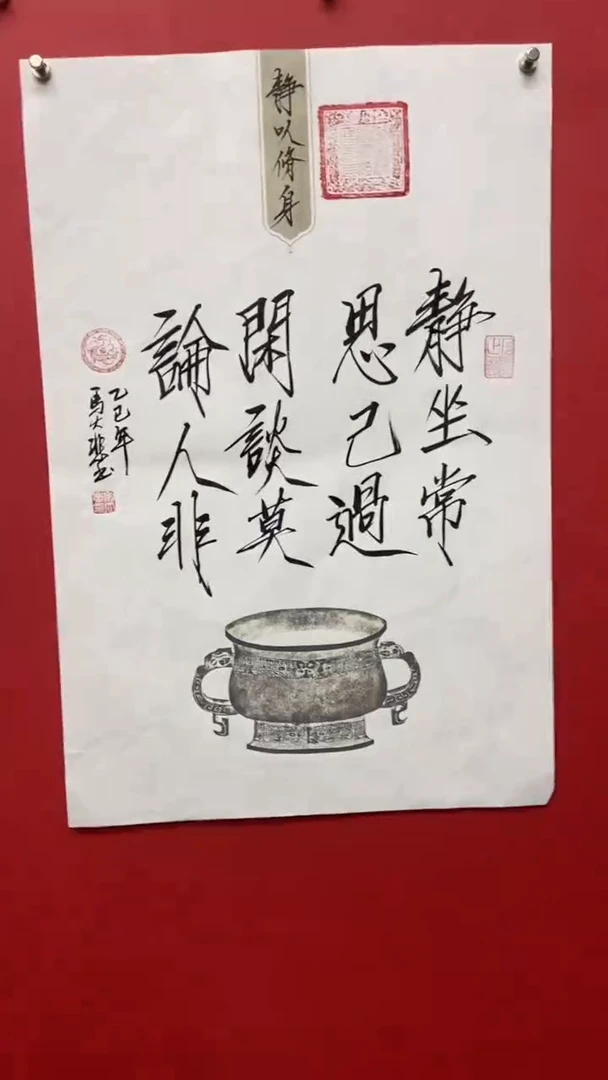 静以脩身
静坐常
思己過
閑談莫
論人非
乙巳年
馬大